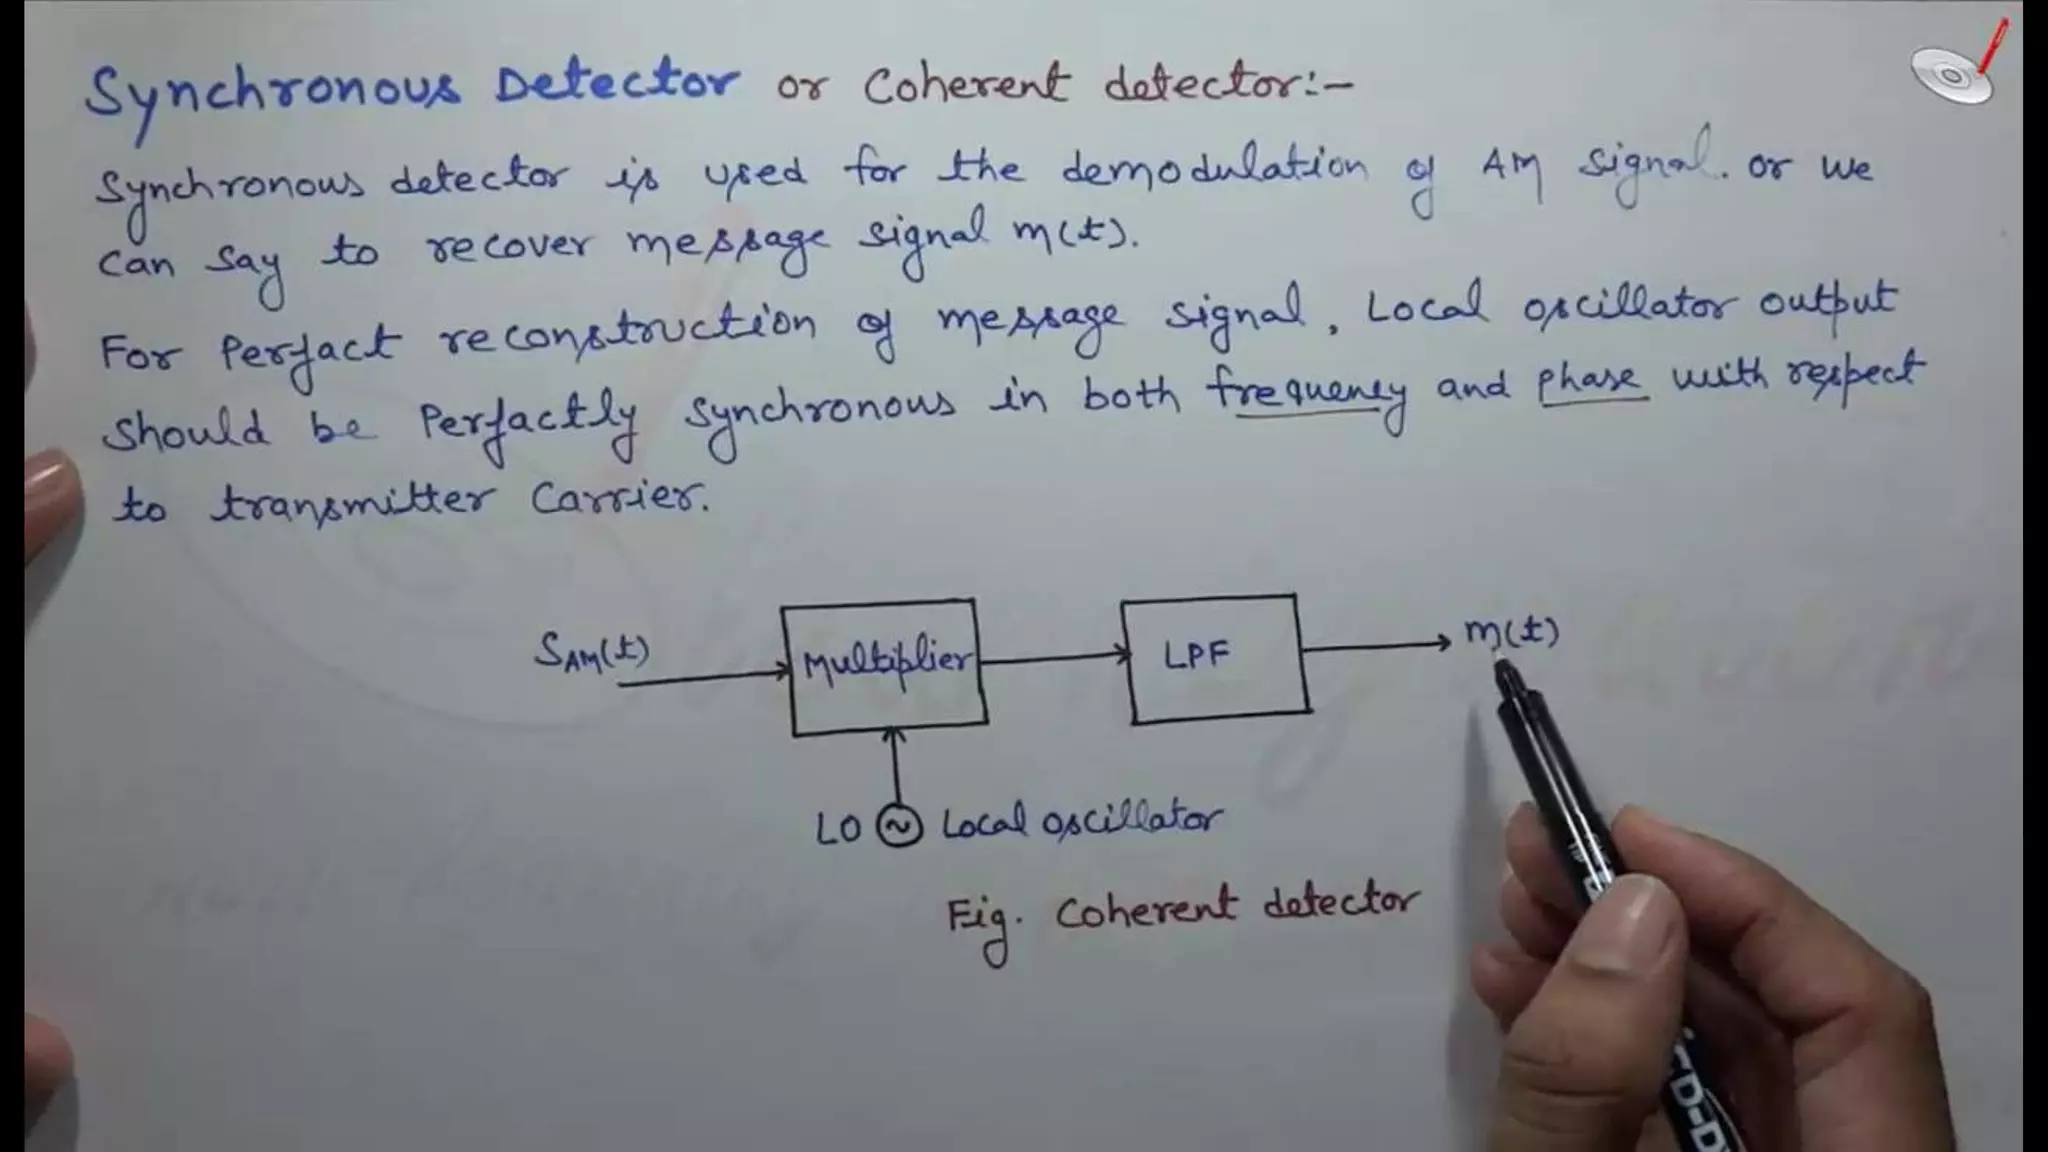 Synchronous Detector or Coherent detector:-
Synchronous detector is used for the demodulation of AM signal. or we
can say to recover message signal m(t).
For Perfact reconstruction of message signal, Local oscillator output
should be Perfactly synchronous in both frequency and phase with respect
to transmitter Carrier.
SAM(t)
Multiplier
LPF
m(t)
LO ~ Local oscillator
Fig. Coherent detector